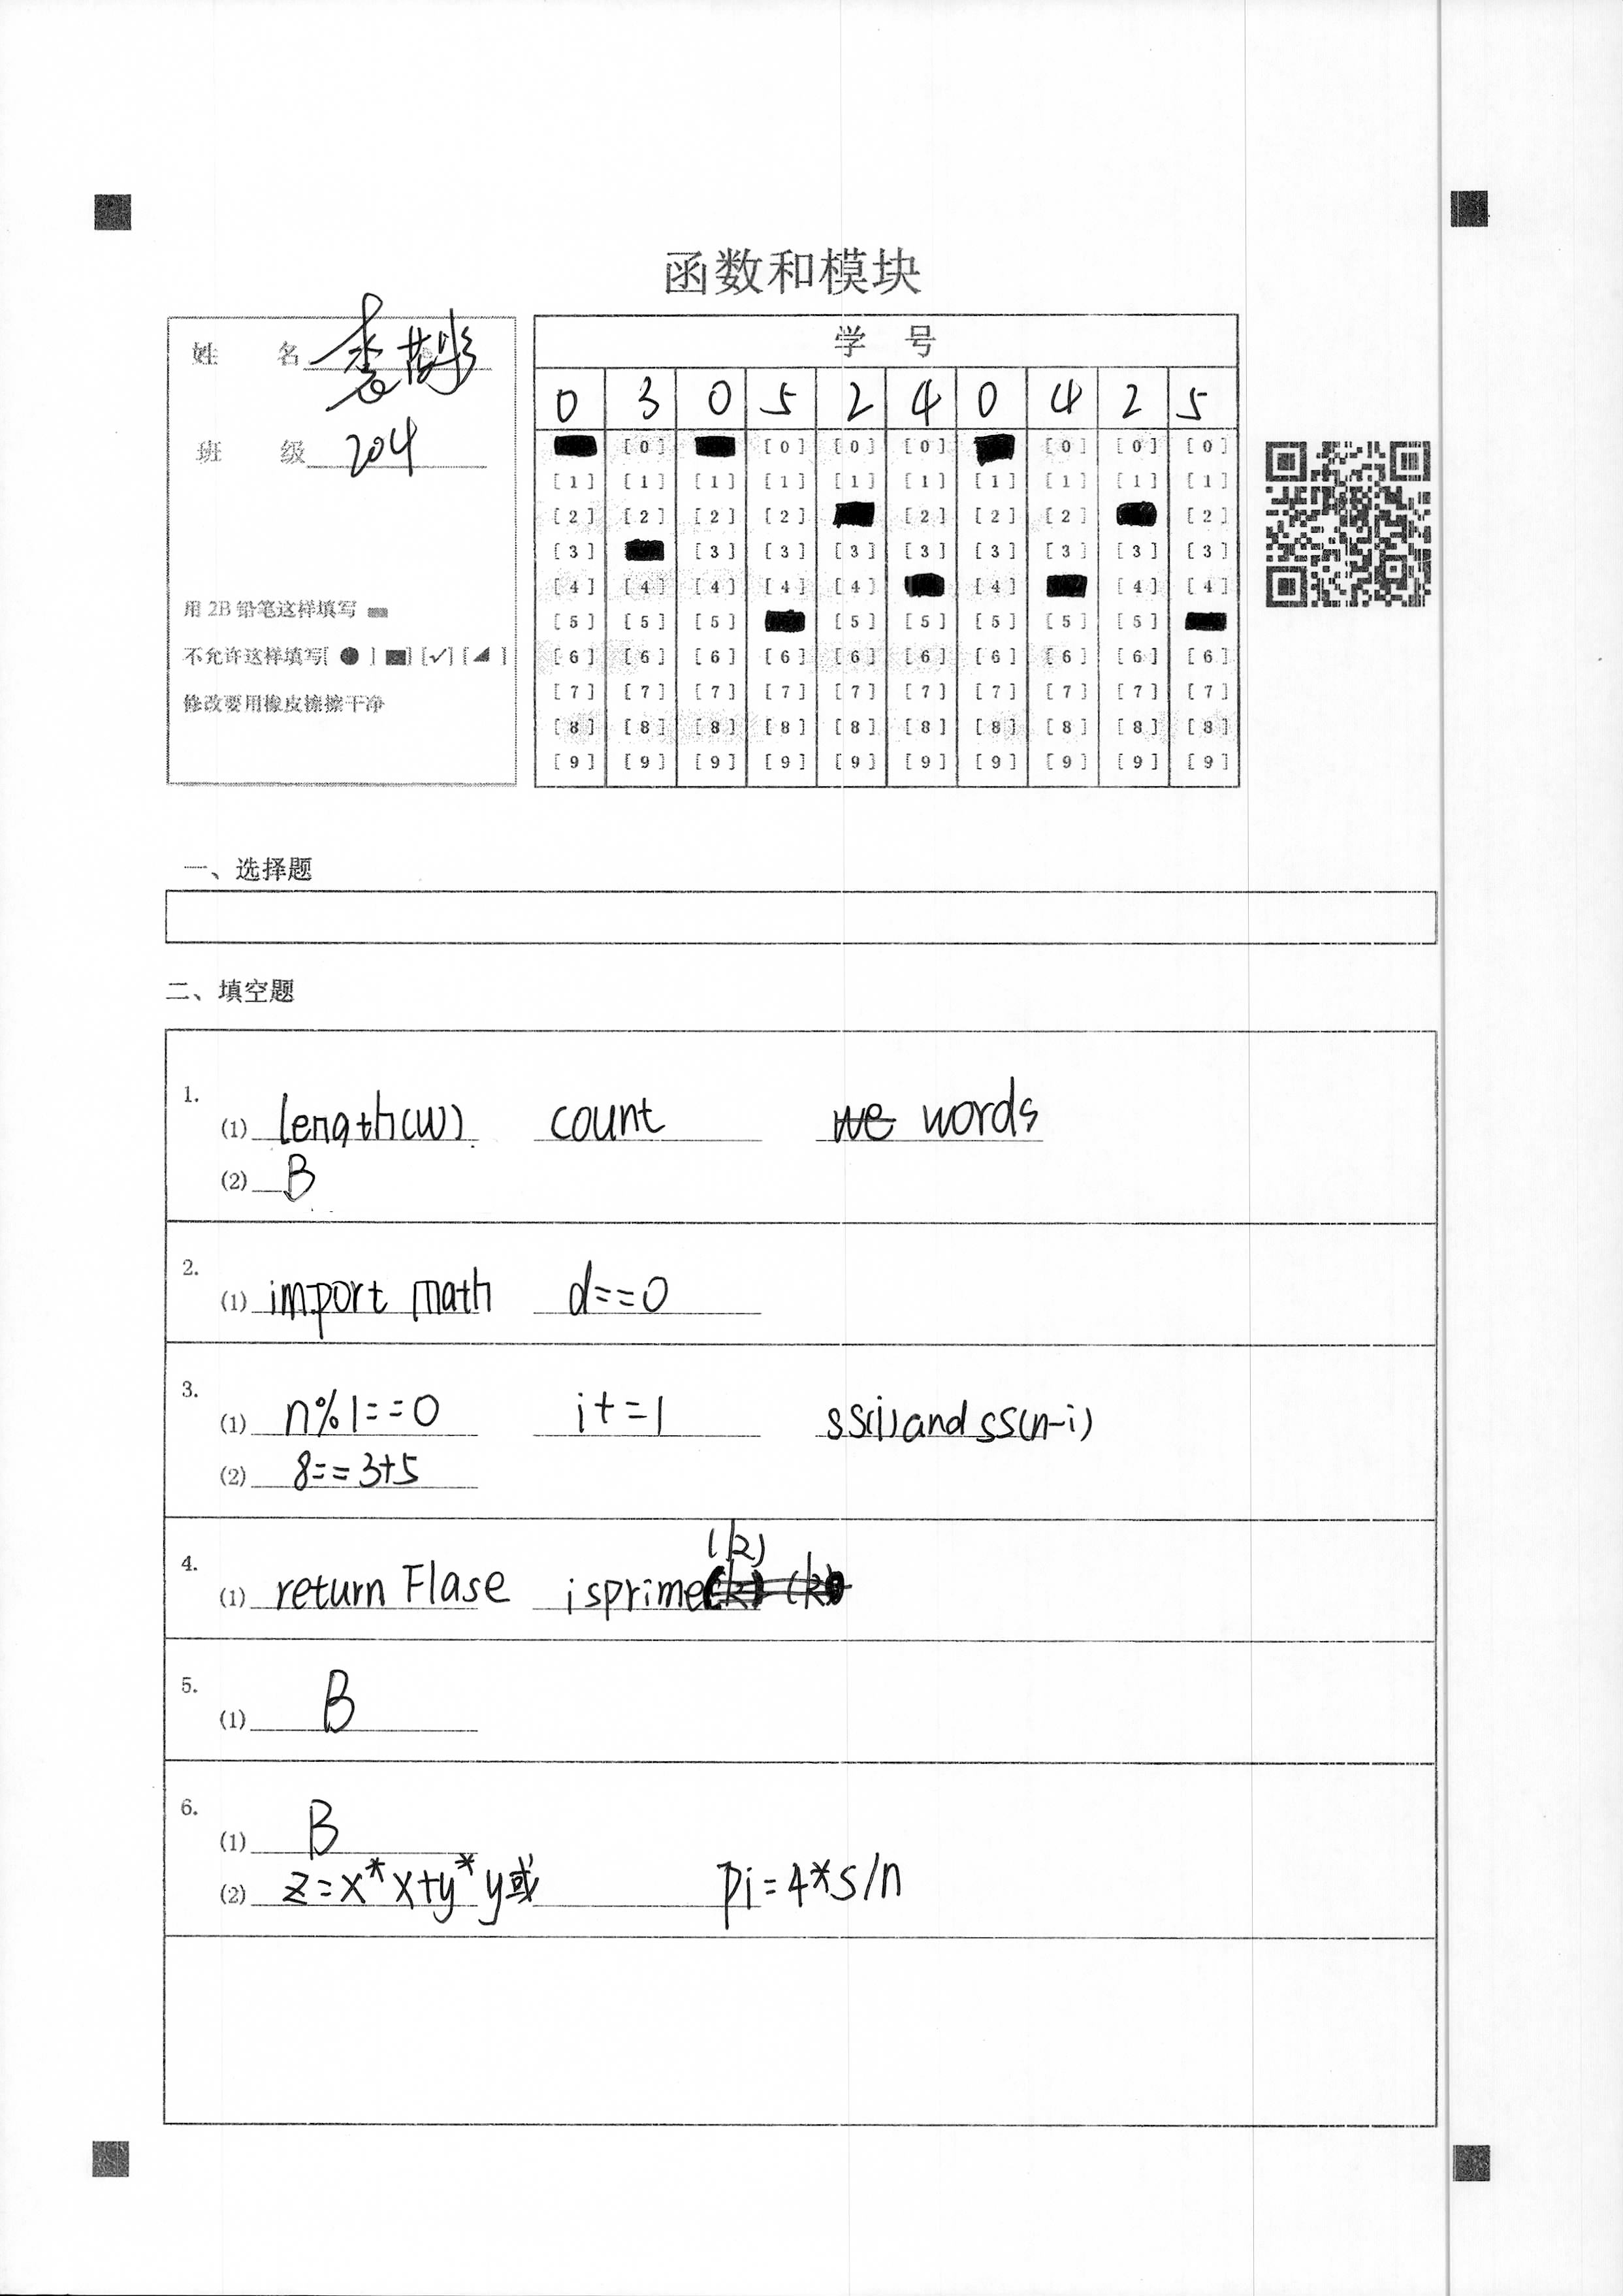 函数和模块
姓 名
班 级 204
用 2B 铅笔这样填写
不允许这样填写[ ● ] [■] [✓] [◢ ]
修改要用橡皮擦擦干净
学 号
0 3 0 5 2 4 0 4 2 5
[0] [0] [0] [0] [0] [0] [0]
[1] [1] [1] [1] [1] [1] [1] [1] [1] [1]
[2] [2] [2] [2] [2] [2] [2] [2]
[3] [3] [3] [3] [3] [3] [3] [3] [3]
[4] [4] [4] [4] [4] [4] [4] [4]
[5] [5] [5] [5] [5] [5] [5] [5]
[6] [6] [6] [6] [6] [6] [6] [6] [6] [6]
[7] [7] [7] [7] [7] [7] [7] [7] [7] [7]
[8] [8] [8] [8] [8] [8] [8] [8] [8] [8]
[9] [9] [9] [9] [9] [9] [9] [9] [9] [9]
一、选择题
二、填空题
1.
(1) length(w) count words
(2) B
2.
(1) import math d==0
3.
(1) n%1==0 i+=1 ss(i)and ss(n-i)
(2) 8==3+5
4.
(1) return Flase isprime(k)
5.
(1) B
6.
(1) B
(2) z=x*x+y*y或 pi=4*s/n